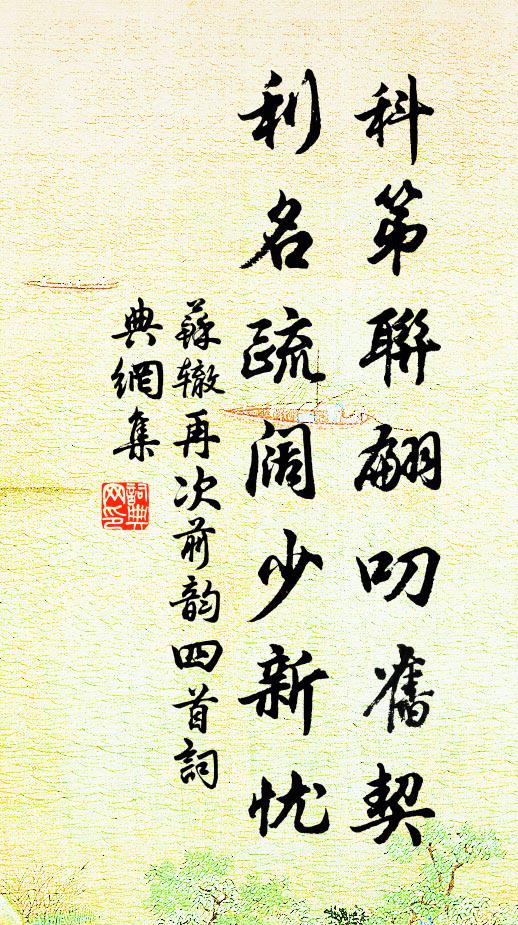 科第聯翩叨舊契
利名疏阔少新忧
蘇辙再次前韵四首詞
典網集
詞典网印